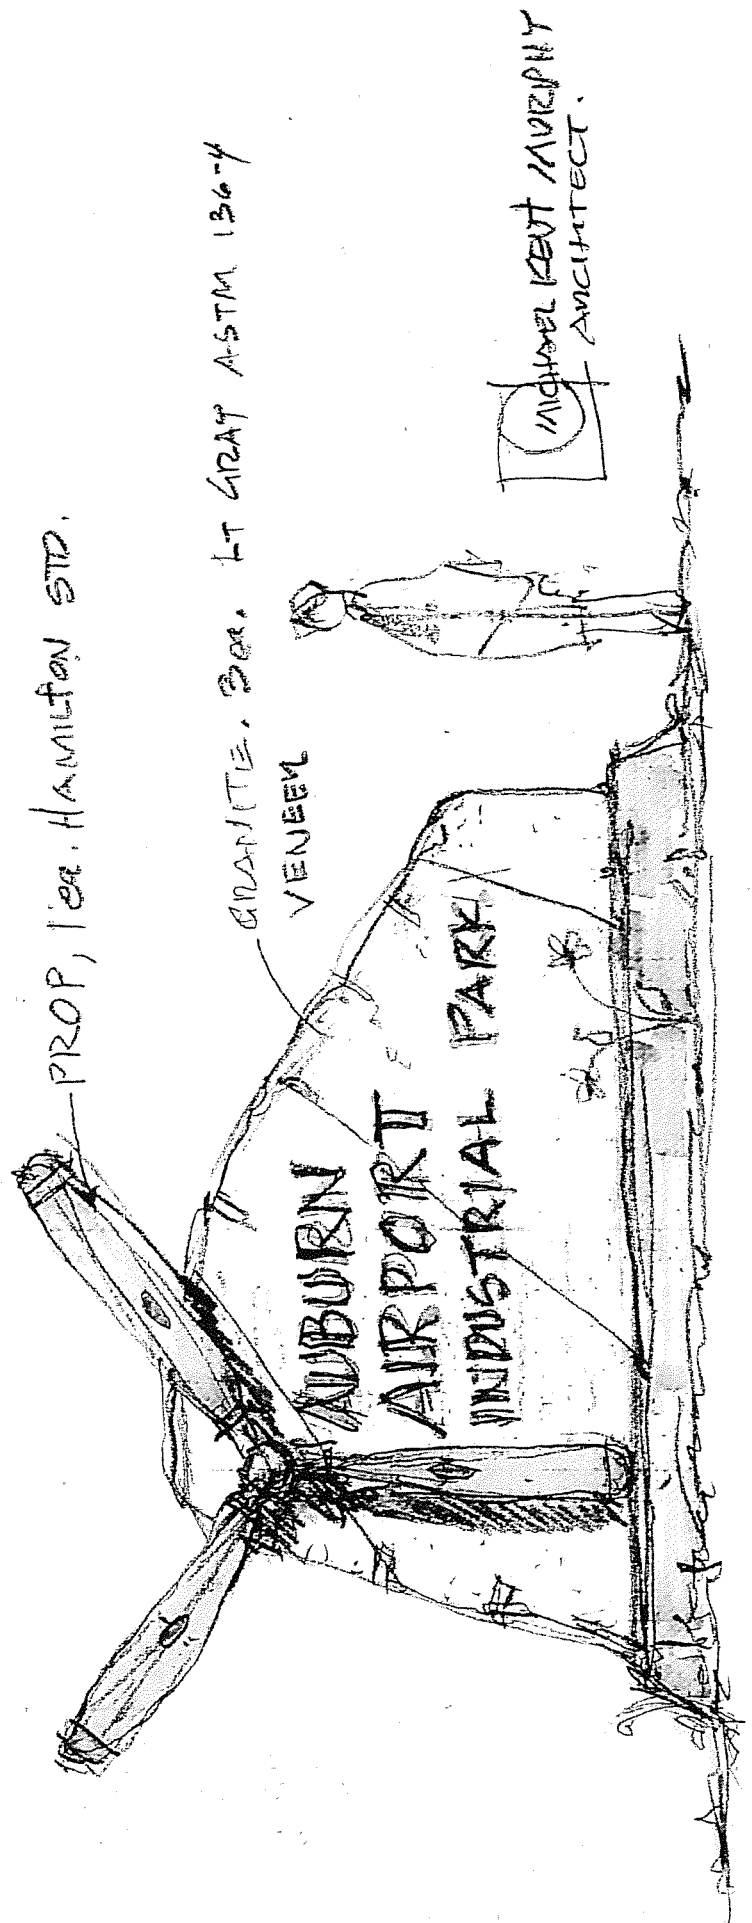 PROP, 1 ea. HAMILTON STD.
GRANITE. 3 ea. LT GRAY ASTM 136-4
VENEER
AUBURN
AIRPORT
INDUSTRIAL PARK
MICHAEL KENT MURPHY
ARCHITECT.